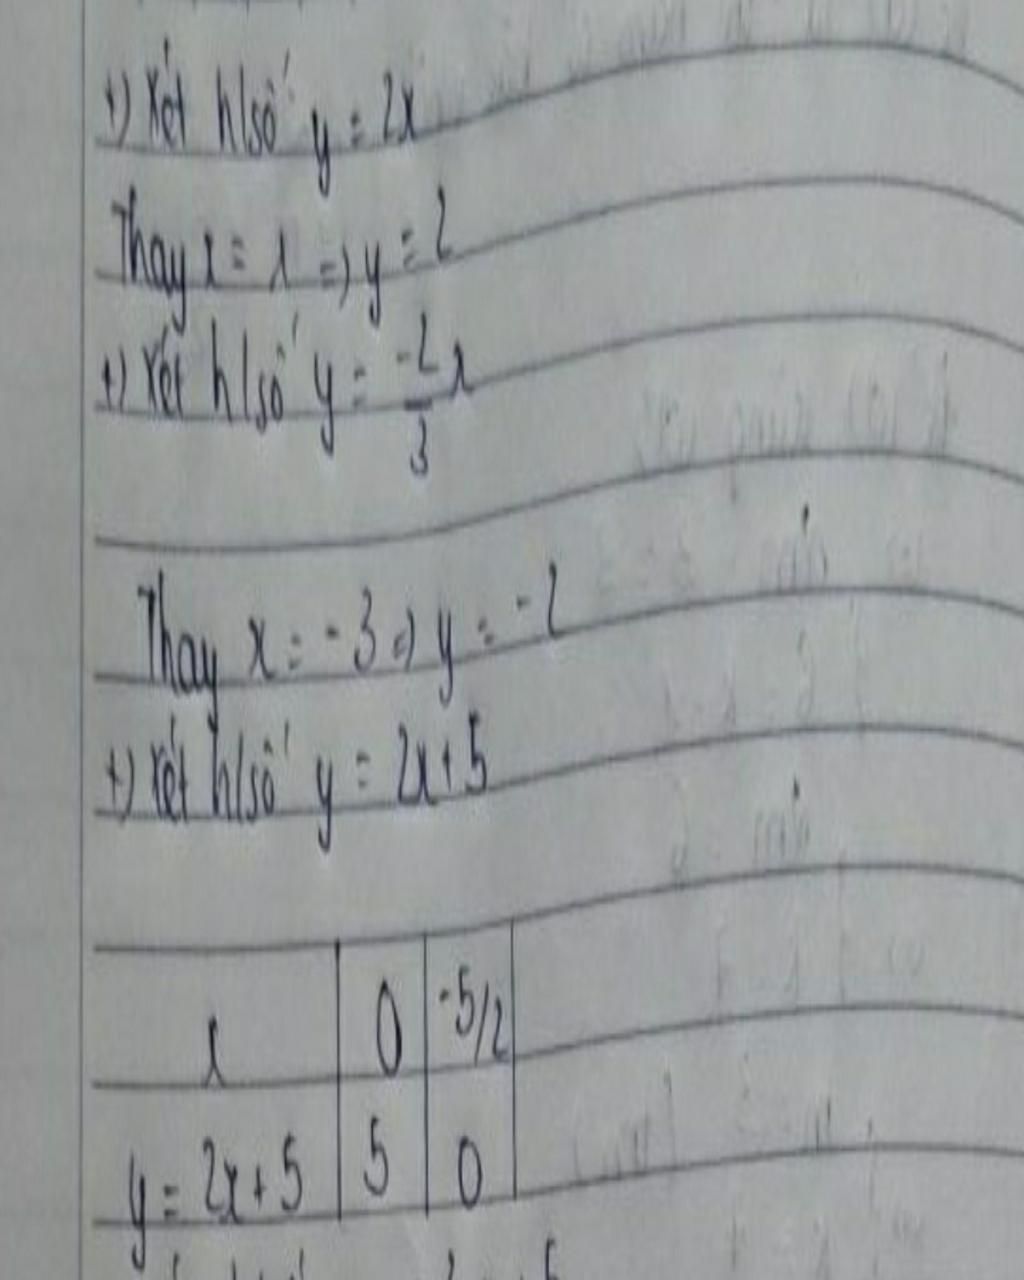 +) Xét h/số y = 2x
Thay x = 1 => y = 2
+) Xét h/số y = -2/3 x
Thay x = -3 => y = -2
+) Xét h/số y = 2x + 5
x | 0 | -5/2
y = 2x + 5 | 5 | 0